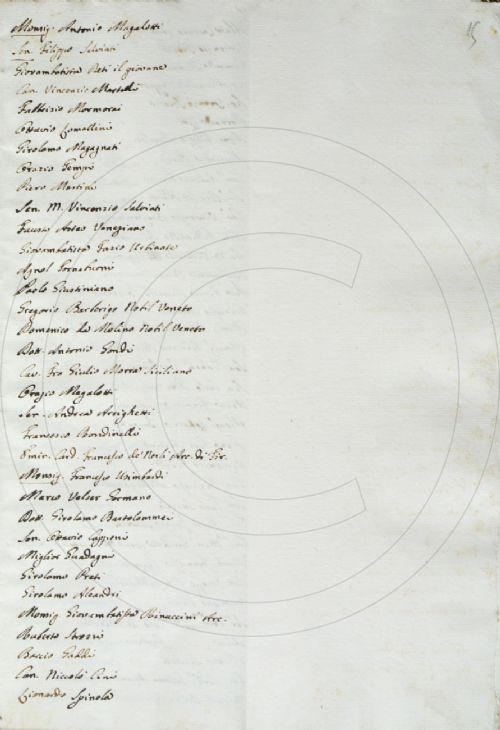 15
Monsig. Antonio Magalotti
Sen. Filippo Salviati
Giovambatista Reti il giovane
Can. Vincenzio Martelli
Fabbrizio Mormorai
Ottavio Lomellini
Girolamo Magagnati
Orazio Tempi
Piero Martini
Sen. M. Vincenzio Salviati
Fausto Veneziano
Giovambatista Fazio Urbinate
Agnol Fornaciuoni
Paolo Giustiniano
Gregorio Barbarigo Nobil Veneto
Domenico da Molino Nobil Veneto
Dott. Antonio Gondi
Cav. Fra Giulio Morra Siciliano
Orazio Magalotti
Ser. Andrea Arrighetti
Francesco Bondinelli
Emin. Card. Francesco de' Nerli Arc. di Fir.
Monsig. Francesco Usimbardi
Marco Velser Germano
Dott. Girolamo Bartolommei
Sen. Ottavio Capponi
Miglior Guadagni
Girolamo Preti
Girolamo Aleandri
Monsig. Giovambatista Rinuccini Arc.
Ruberto Strozzi
Baccio Gaddi
Can. Niccolò Cini
Lionardo Spinola